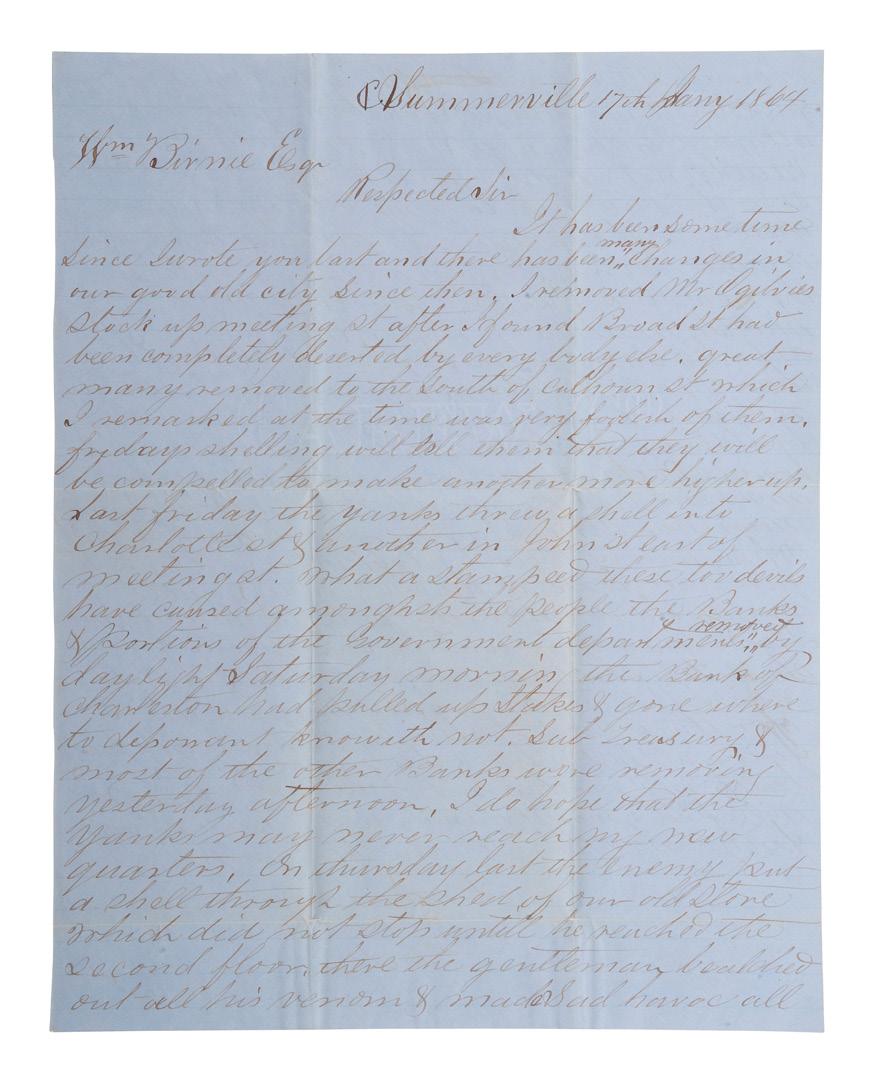 Summerville 17th Jany 1864
Wm Birnie Esqr
Respected Sir
It has been some time
since I wrote you last and there has been many changes in
our good old city since then. I removed Mr Ogilvies
stock up meeting st after I found Broad st had
been completely deserted by every body else. great
many removed to the south of calhoun st which
I remarked at the time was very foolish of them.
fridays shelling will tell them that they will
be compelled to make another move higher up.
Last friday the yanks threw a shell into
Charlotte st & another in John st east of
meeting st. What a stampeed these two devils
have caused amonghst the people the Banks
& portions of the Government departments removed by
daylight Saturday morning the Bank of
Charleston had pulled up stakes & gone where
to deponant knowith not. Sub Treasury &
most of the other Banks were removing
yesterday afternoon, I do hope that the
yanks may never reach my new
quarters. On thursday last the enemy put
a shell through the shed of our old store
which did not stop untill he reached the
second floor. there the gentleman bealched
out all his venom & made sad havoc all